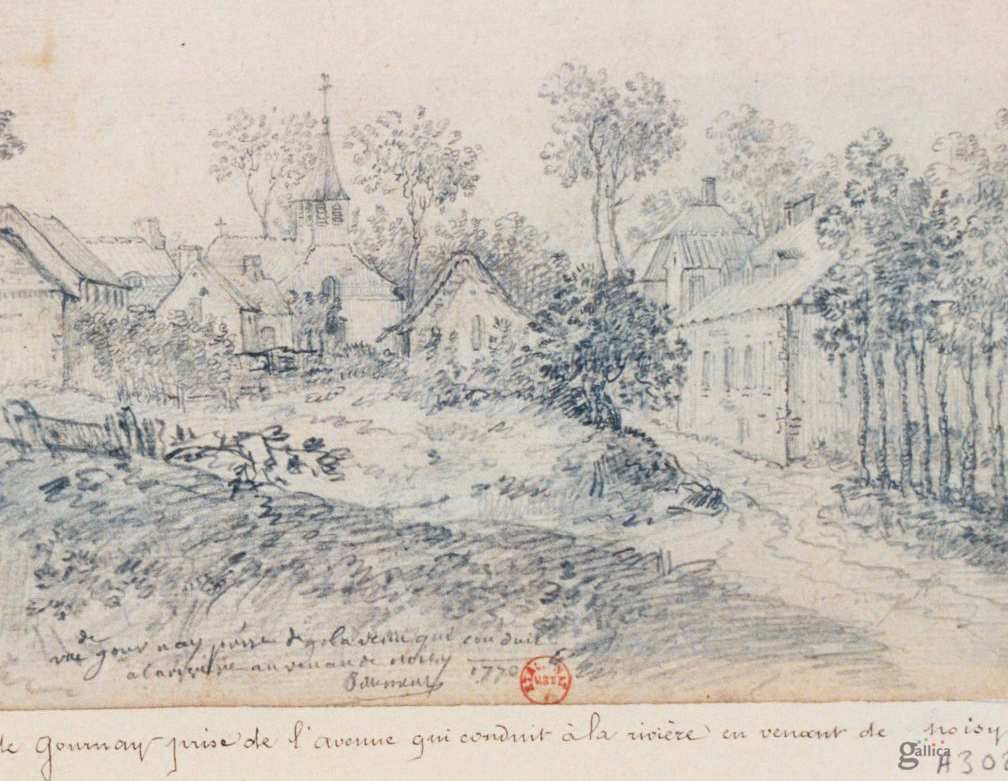 vue de gournay prise de la venue qui conduit
a la riviere au venan de noisy 1770
de Gournay prise de l'avenue qui conduit à la rivière en venant de noisy
gallica
A 303